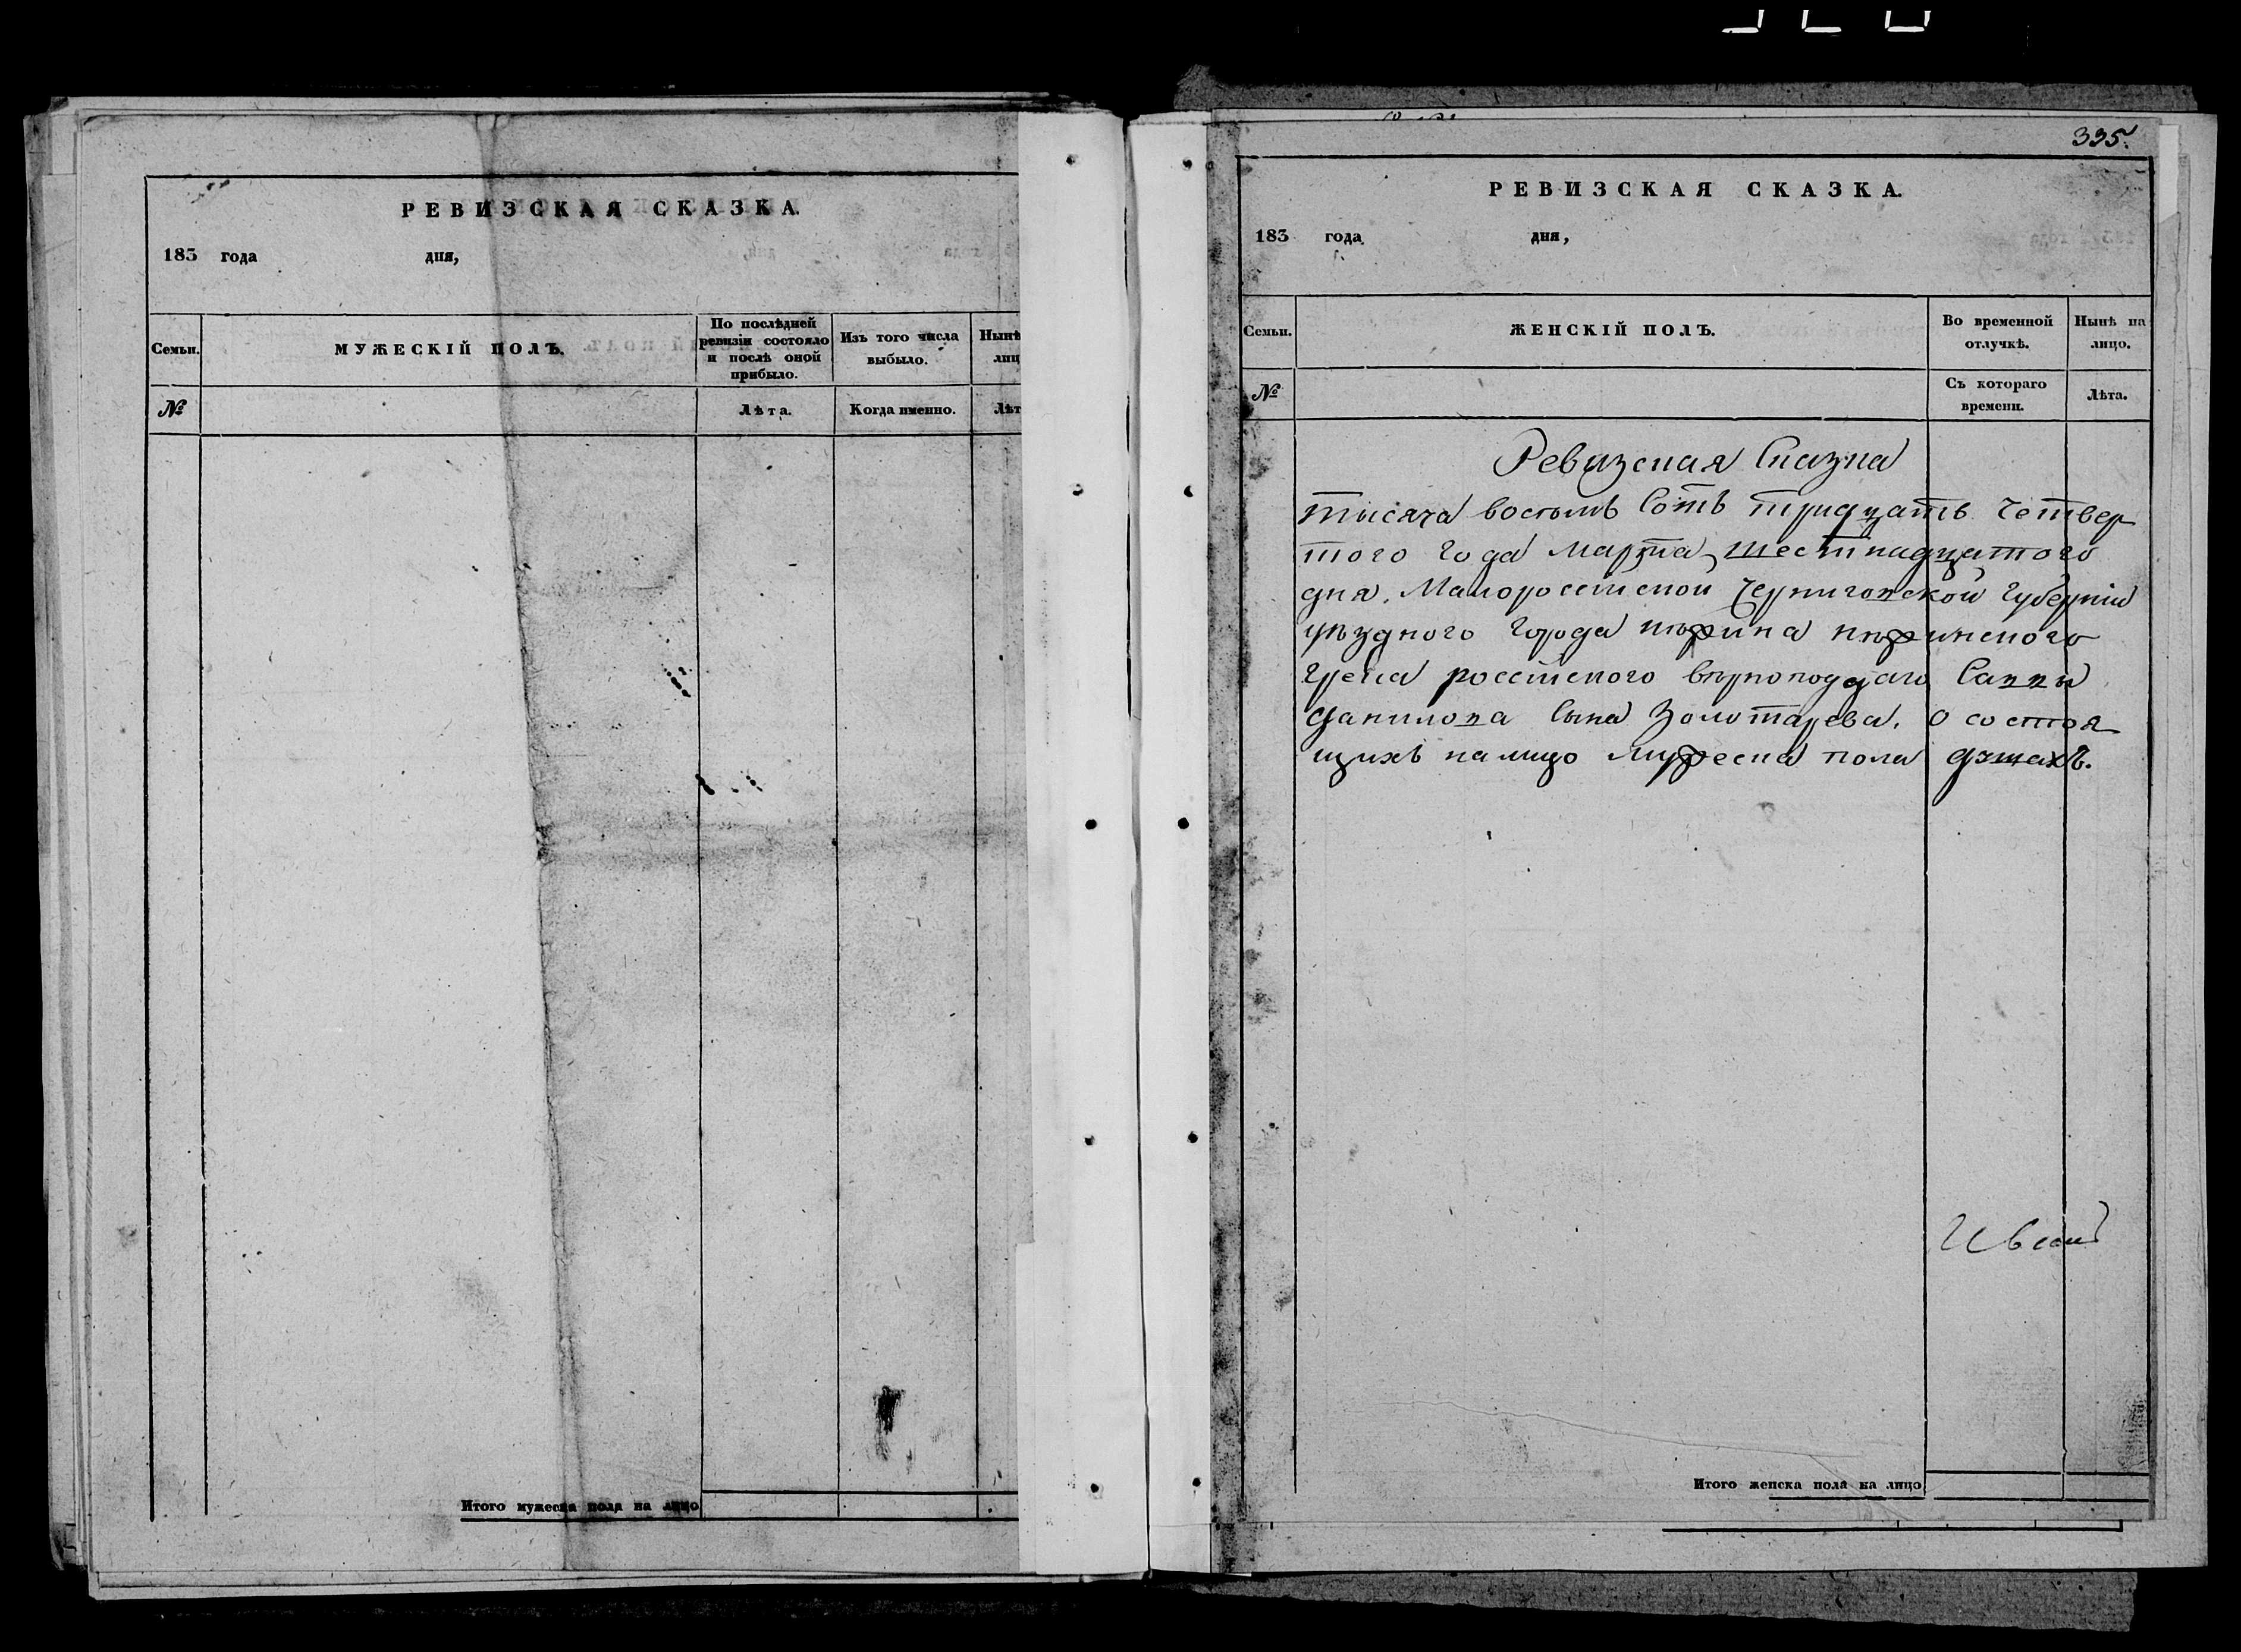 РЕВИЗСКАЯ СКАЗКА.
183 года дня,
Семьи.
МУЖЕСКІЙ ПОЛЪ.
По послѣдней ревизіи состояло и послѣ оной прибыло.
Изъ того числа выбыло.
Нынѣ
лиц
№
Лѣта.
Когда именно.
Лѣт
Итого мужеска пола на лицо
335.
РЕВИЗСКАЯ СКАЗКА.
183 года дня,
Семьи.
ЖЕНСКІЙ ПОЛЪ.
Во временной отлучкѣ.
Нынѣ на лицо.
№
Съ котораго времени.
Лѣта.
Ревизская Сказка
тысяча восемь Сотъ тридцать четвер
того года марта шестнадцатого
дня. Малороссийской Черниговской Губерніи
уѣздного города нѣжина нѣжинского
грека россійского вѣрноподдаго Саввы
данилова сына Золотарева. о состоя
щихъ налицо мужеска пола душахъ.
Итого женска пола на лицо